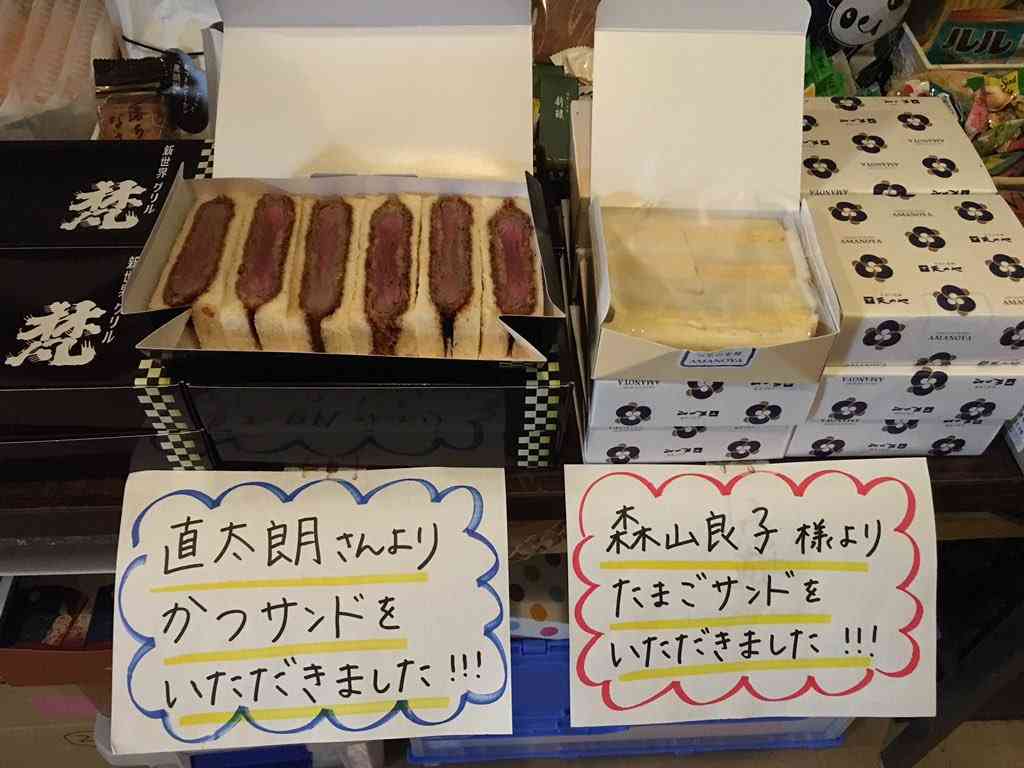 ルル
新世界 グリル
梵
新世界 グリル
梵
AMANOYA
AMANOYA
AMANOYA
AMANOYA
AMANOYA
直太朗さんより
かつサンドを
いただきました!!!
森山良子様より
たまごサンドを
いただきました!!!